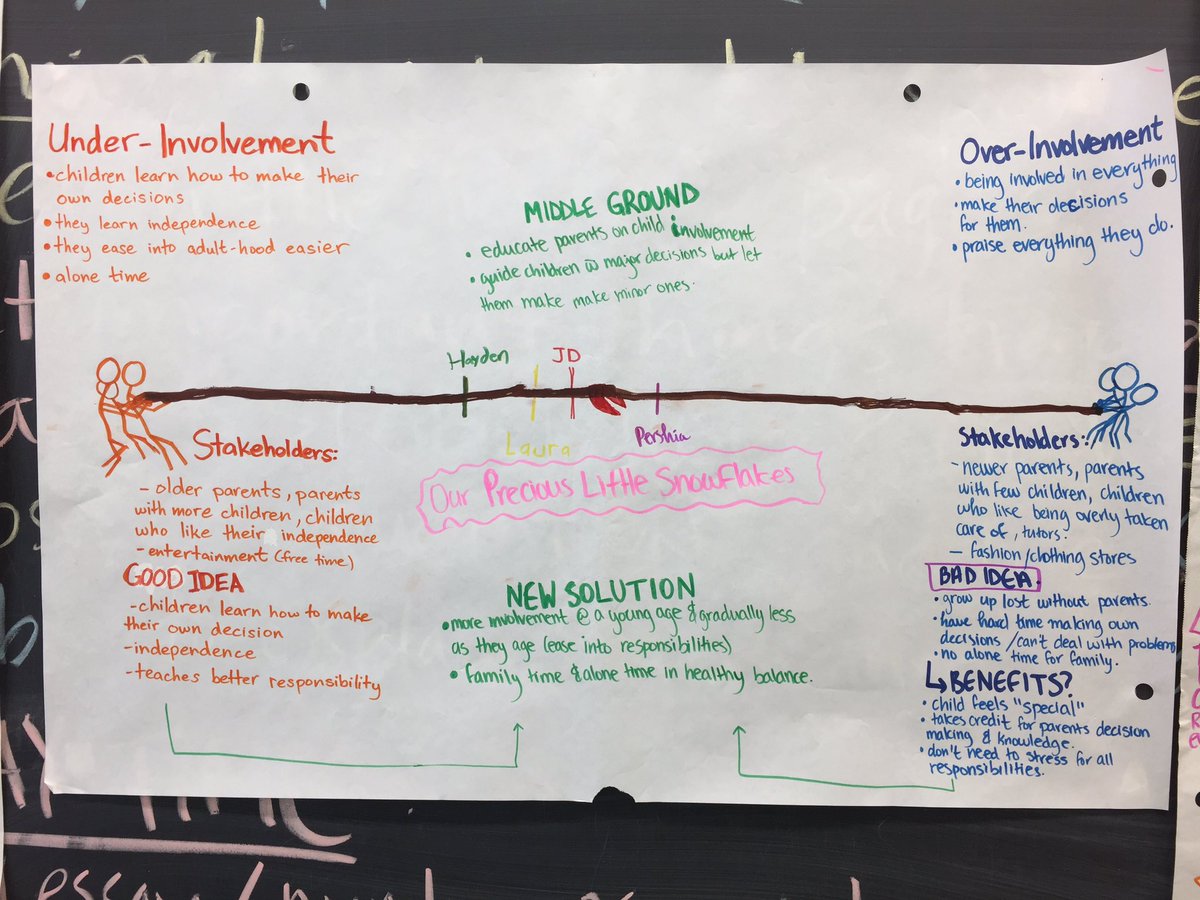 Under-Involvement
•children learn how to make their
own decisions
•they learn independence
•they ease into adult-hood easier
•alone time
MIDDLE GROUND
• educate parents on child involvement
• guide children w major decisions but let
them make make minor ones.
Over-Involvement
• being involved in everything
• make their decisions
for them.
• praise everything they do.
Harden
JD
Laura
Pershia
Our Precious Little Snowflakes
Stakeholders:
- older parents, parents
with more children, children
who like their independence
- entertainment (free time)
GOOD IDEA
-children learn how to make
their own decision
-independence
-teaches better responsibility
NEW SOLUTION
•more involvement @ a young age & gradually less
as they age (ease into responsibilities)
• family time & alone time in healthy balance.
Stakeholders:
- newer parents, parents
with few children, children
who like being overly taken
care of, tutors.
- fashion/clothing stores
BAD IDEA.
• grow up lost without parents.
• have hard time making own
decisions / can't deal with problems
• no alone time for family.
↳BENEFITS?
• child feels "special"
• takes credit for parents decision
making & knowledge.
• don't need to stress for all
responsibilities.